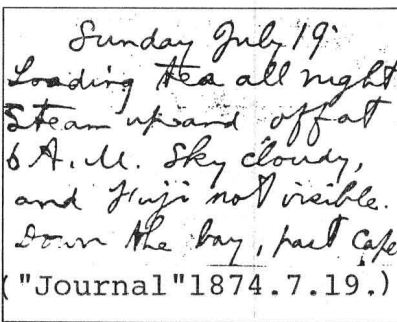 Sunday July 19th
Loading tea all night
Steam up and off at
6 A.M. Sky cloudy,
and Fuji not visible.
Down the bay, past Cape
("Journal"1874.7.19.)